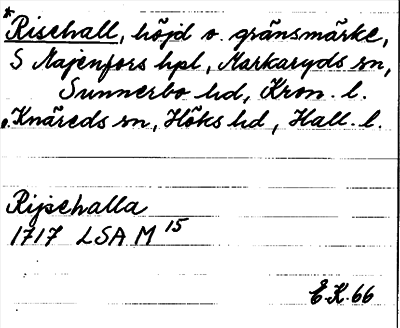 *
Rischall, höjd o. gränsmärke,
S Majenfors hpl, Markaryds sn,
Sunnerbo hd, Kron. l.
o. Knäreds sn, Höks hd, Hall. l.
Ripehalla
1717 LSA M 15
E.K. 66